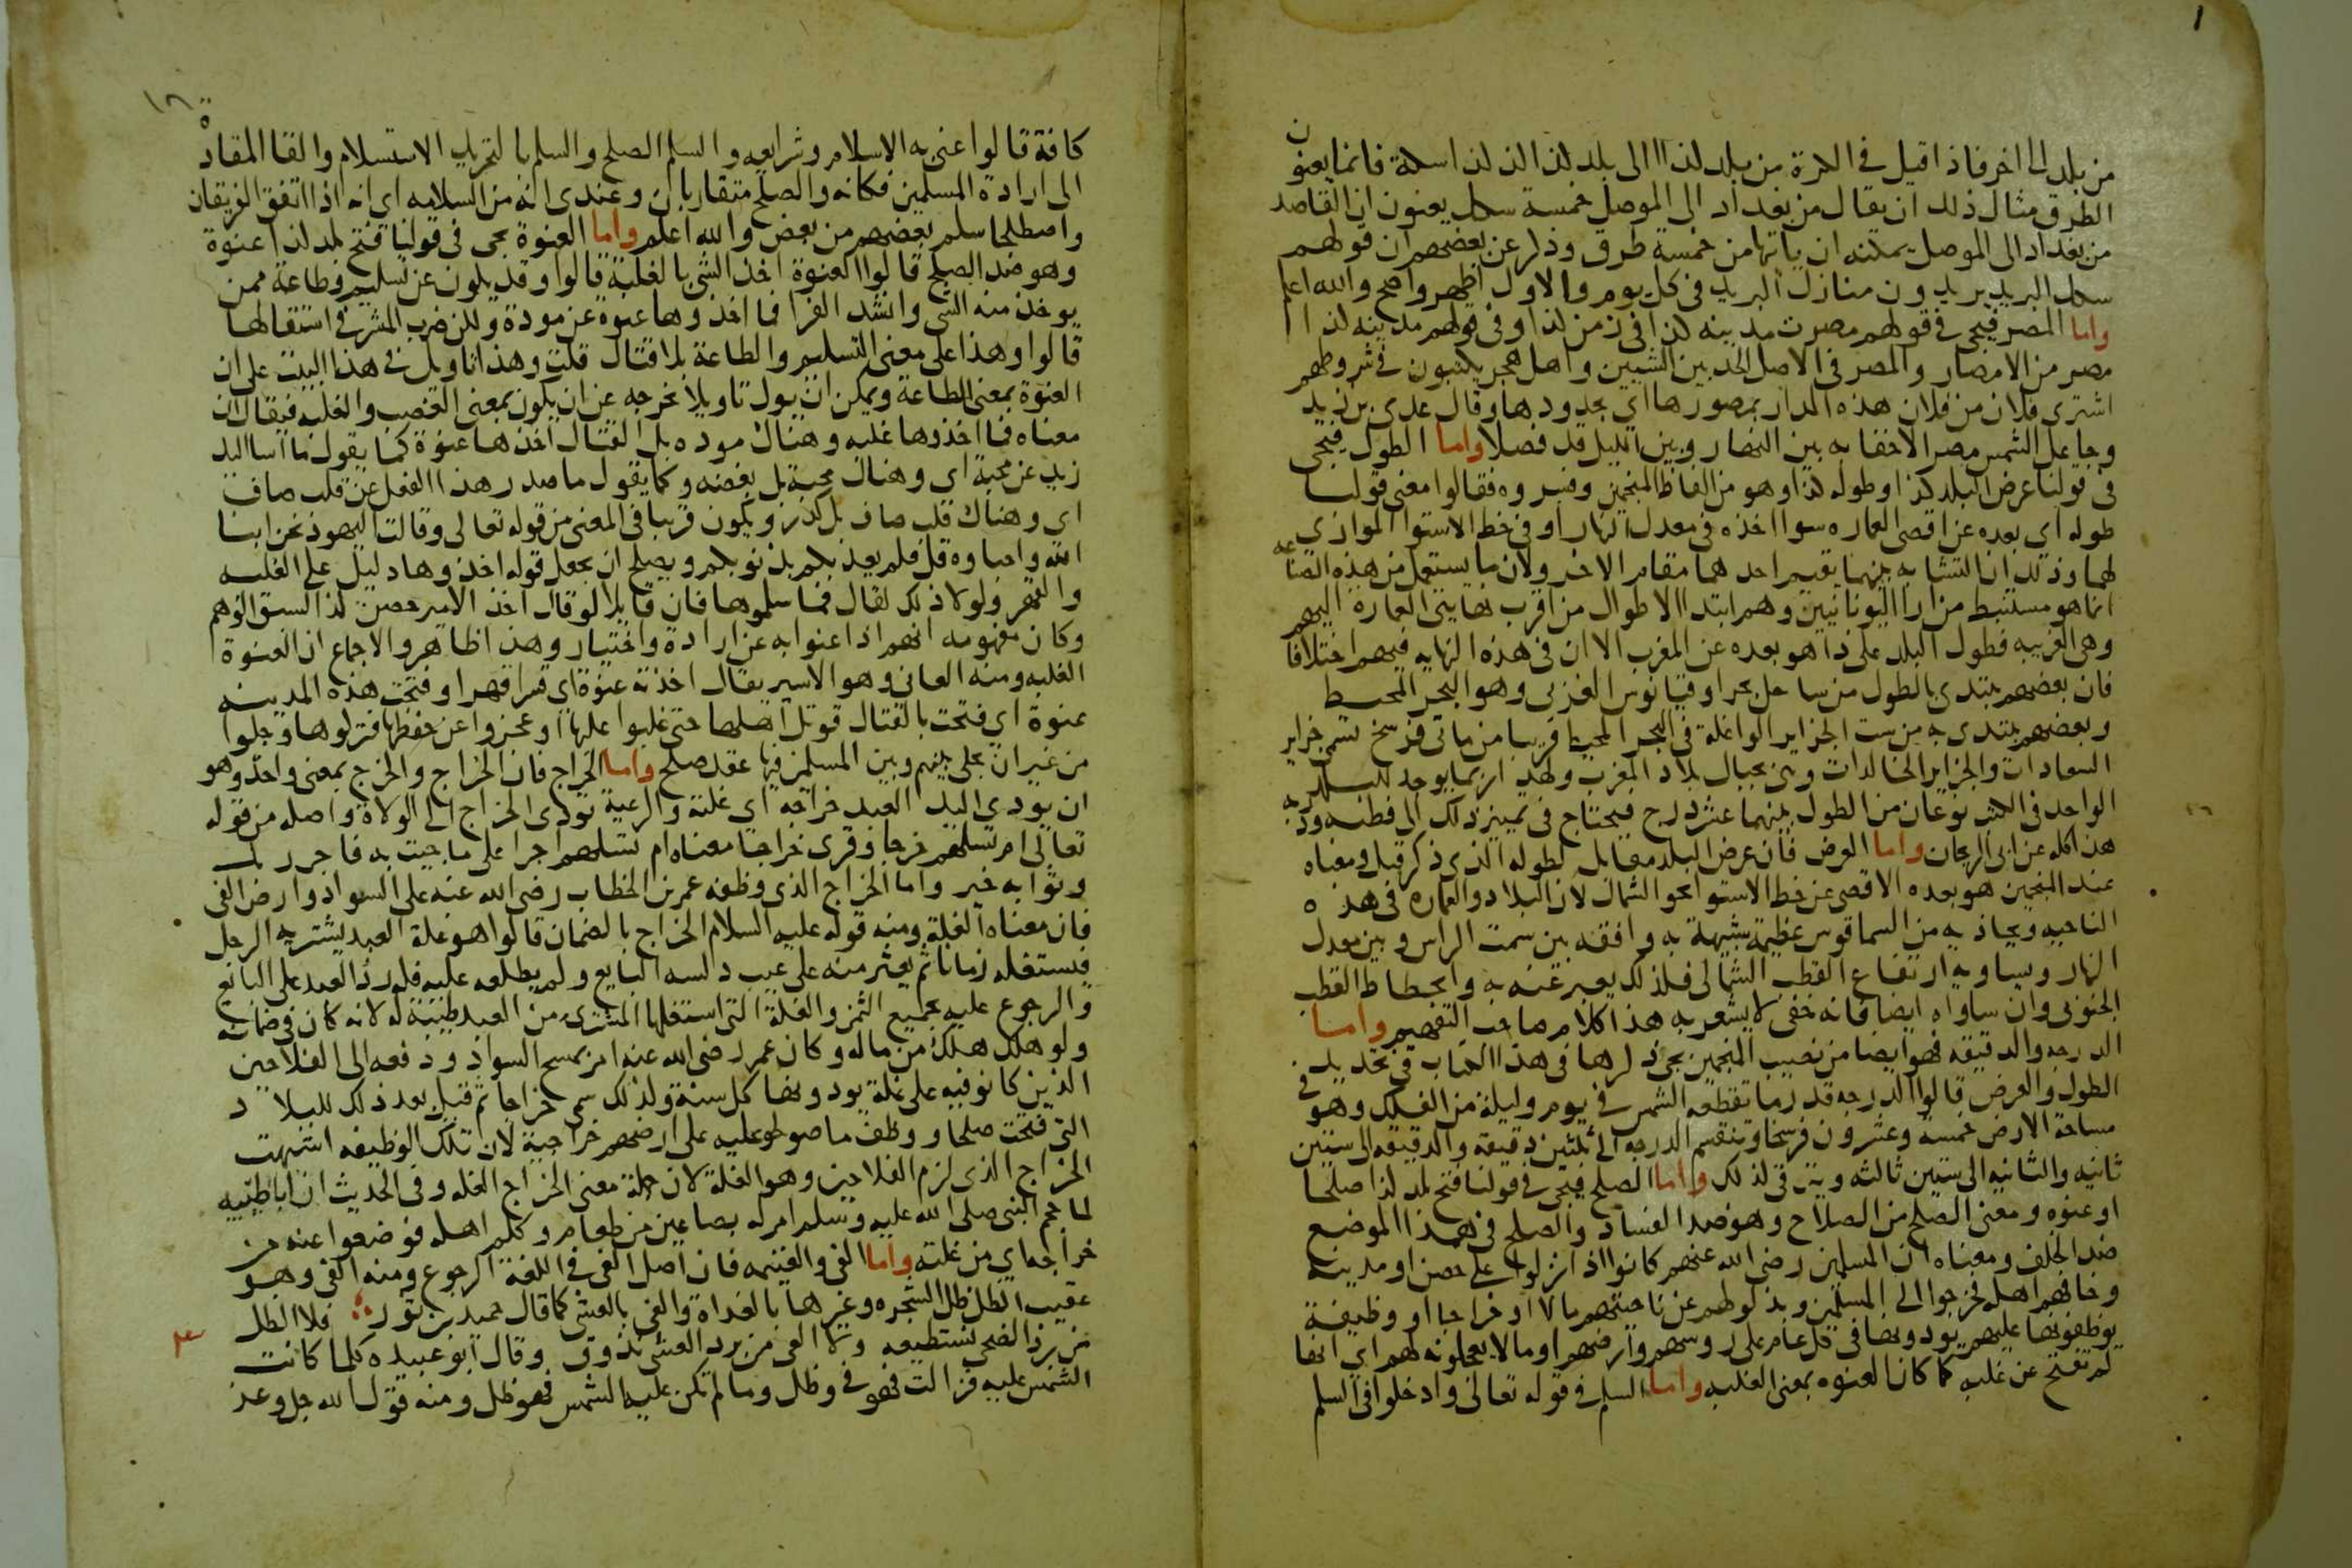 من بلد الى اخر فاذا قيل في الكرة من بلد كذا الى بلد كذا كذا كذا سكة فانما يعنون
الطرق مثال ذلك ان يقال من بغداد الى الموصل خمسة سكك يعنون ان القاصد
من بغداد الى الموصل يمكنه ان ياتيها من خمسة طرق وذكر عن بعضهم ان قولهم
سكك البريد يريدون منازل البريد في كل يوم والاول اظهر واصح والله اعلم
واما المصر فيجى في قولهم مصرت مدينه كذا في زمن كذا وفي قولهم مدينه كذا
مصر من الامصار والمصر في الاصل الحد بين الشيين واهل هجر يكتبون في شروطهم
اشترى فلان من فلان هذه الدار بمصورها اي بحدودها وقال عدي بن زيد
وجاعل الشمس مصرا لاخفا به بين النهار وبين الليل قد فصلا واما الطول فيجى
في قولنا عرض البلد كذا وطوله كذا وهو من الفاظ المنجمين وفسروه فقالوا معنى قولنا
طوله اي بعده عن اقصى العماره سوا اخذه في معدل النهار او في خط الاستوا الموازي
لهما وذلك ان التشابه بينهما يقيم احدهما مقام الاخر ولان ما يستعمل من هذه الصناعه
انما هو مستنبط من ارا اليونانيين وهم ابتدا الاطوال من اقرب نهايتي العمارة اليهم
وهي الغربيه فطول البلد على ذا هو بعده عن المغرب الا ان في هذه النهايه فيهم اختلافا
فان بعضهم يبتدي بالطول من ساحل بحر اوقيانوس الغربي وهو البحر المحيط
وبعضهم يبتدي به من ست الجزاير الواغلة في البحر المحيط قريبا من ماتي فرسخ تسمى جزاير
السعادات والجزاير الخالدات وهي بحيال بلاد المغرب ولهذا ربما يوجد للبلد
الواحد في الكتب نوعان من الطول بينهما عشر درج فيحتاج في تمييز ذلك الى فطنه ودربه
هذا كله عن ابي الريحان واما العرض فان عرض البلد مقابل لطوله الذي ذكر قبل ومعناه
عند المنجمين هو بعده الاقصى عن خط الاستوا نحو الشمال لان البلاد والعماره في هذه
الناحيه ويحاذيه من السما قوس عظيمة شبيهة به واقفه بين سمت الراس وبين معدل
النهار ويساويه ارتفاع القطب الشمالي فلذلك يعبر عنه به وانحطاط القطب
الجنوبي وان ساواه ايضا فانه خفي لا يشعر به هذا كلام صاحب التفهيم واما
الدرجه والدقيقه فهو ايضا من نصيب المنجمين يجى ذكرها في هذا الكتاب في تحديد
الطول والعرض قالوا الدرجه قدر ما تقطعه الشمس في يوم وليلة من الفلك وهو في
مساحة الارض خمسة وعشرون فرسخا وتنقسم الدرجه الى ثلثين دقيقه والدقيقه الى ستين
ثانيه والثانيه الى ستين ثالثه ويترقى لذلك واما الصلح فيجى في قولنا فتح بلد كذا صلحا
او عنوه ومعنى الصلح من الصلاح وهو ضد الفساد والصلح في هذا الموضع
ضد الخلف ومعناه ان المسلمين رضي الله عنهم كانوا اذا نزلوا على حصن او مدينه
وخافهم اهله فخرجوا الى المسلمين وبذلوا لهم عن ناحيتهم مالا او خراجا او وظيفة
يوظفونها عليهم يودونها في كل عام على روسهم وارضهم او مالا يعجلونه لهم اي انها
لم تفتح عن غلبه كما كان العنوه بمعنى الغلبه واما السلم في قوله تعالى وادخلوا في السلم
١٦
كافة قالوا عنى به الاسلام وشرايعه والسلم الصلح والسلم بالتحريك الاستسلام والقا المقادة
الى ارادة المسلمين فكانه والصلح متقاربان وعندي انه من السلامه اي انه اذا اتفق الفريقان
واصطلحا سلم بعضهم من بعض والله اعلم واما العنوة يجى في قولنا فتح بلد كذا عنوة
وهو ضد الصلح قالوا العنوة اخذ الشي بالغلبة قالوا وقد يكون عن تسليم وطاعة ممن
يوخذ منه الشي وانشد الفرا فما اخذوها عنوة عن مودة ولكن ضرب المشرفي استقالها
قالوا وهذا على معنى التسليم والطاعة بلا قتال قلت وهذا تاويل في هذا البيت على ان
العنوة بمعنى الطاعة ويمكن ان يول تاويلا يخرجه عن ان يكون بمعنى الغصب والغلبه فيقال ان
معناه فما اخذوها غلبه وهناك موده بل القتال اخذها عنوة كما يقول ما اسا اليك
زيد عن محبة اي وهناك محبة بل بغضه وكما يقول ما صدر هذا الفعل عن قلب صاف
اي وهناك قلب صاف بل كدر ويكون قريبا في المعنى من قوله تعالى وقالت اليهود نحن ابنا
الله واحباوه قل فلم يعذبكم بذنوبكم ويصلح ان يجعل قوله اخذوها دليل على الغلبه
والقهر ولولا ذلك لقال فما سلموها فان قايلا لو قال اخذ الامير حصن كذا لسبق الوهم
وكان مفهومه انهم اذا عنوا به عن ارادة واختيار وهذا ظاهر والاجماع ان العنوة
الغلبه ومنه العاني وهو الاسير يقال اخذته عنوة اي قسرا قهرا وفتحت هذه المدينه
عنوة اي فتحت بالقتال قوتل اهلها حتى غلبوا عليها او عجزوا عن حفظها فتركوها وجلوا
من غير ان يجلى بينهم وبين المسلمين فيها عقد صلح واما الخراج فان الخراج والخرج بمعنى واحد وهو
ان يودي اليد العبد خراجه اي غلته والرعية تودي الخراج الى الولاة واصله من قوله
تعالى ام تسلهم خرجا وقرى خراجا معناه ام تسلهم اجرا على ما جيت به فاجر ربك
وثوابه خير واما الخراج الذي وظفه عمر بن الخطاب رضي الله عنه على السواد وارض الفي
فان معناه الغلة ومنه قوله عليه السلام الخراج بالضمان قالوا هو غلة العبد يشتريه الرجل
فيستغله زمانا ثم يعثر منه على عيب دلسه البايع ولم يطلعه عليه فله رد العبد على البايع
والرجوع عليه بجميع الثمن والغلة التي استغلها المشتري من العبد طيبة له لانه كان في ضمانه
ولو هلك هلك من ماله وكان عمر رضي الله عنه امر بمسح السواد ودفعه الى الفلاحين
الذين كانوا فيه على غلة يودونها كل سنة ولذلك سمي خراجا ثم قيل بعد ذلك للبلاد
التي فتحت صلحا ووظف ما صولحوا عليه على ارضهم خراجية لان تلك الوظيفه اشبهت
الخراج الذي لزم الفلاحين وهو الغلة لان جملة معنى الخراج الغله وفي الحديث ان ابا طيبه
لما حجم النبي صلى الله عليه وسلم امر له بصاعين من طعام وكلم اهله فوضعوا عنه من
خراجه اي من غلته واما الفي والغنيمه فان اصل الفي في اللغة الرجوع ومنه الفي وهو
عقيب الظل ظل الشجره وغيرها بالغداة والفي بالعشي كما قال حميد بن ثور فلا الظل
من برد الضحى تستطيعه ولا الفي من برد العشي تذوق وقال ابو عبيده كلما كانت
الشمس عليه فزالت فهو في وظل وما لم تكن عليه الشمس فهو ظل ومنه قول الله جل وعز